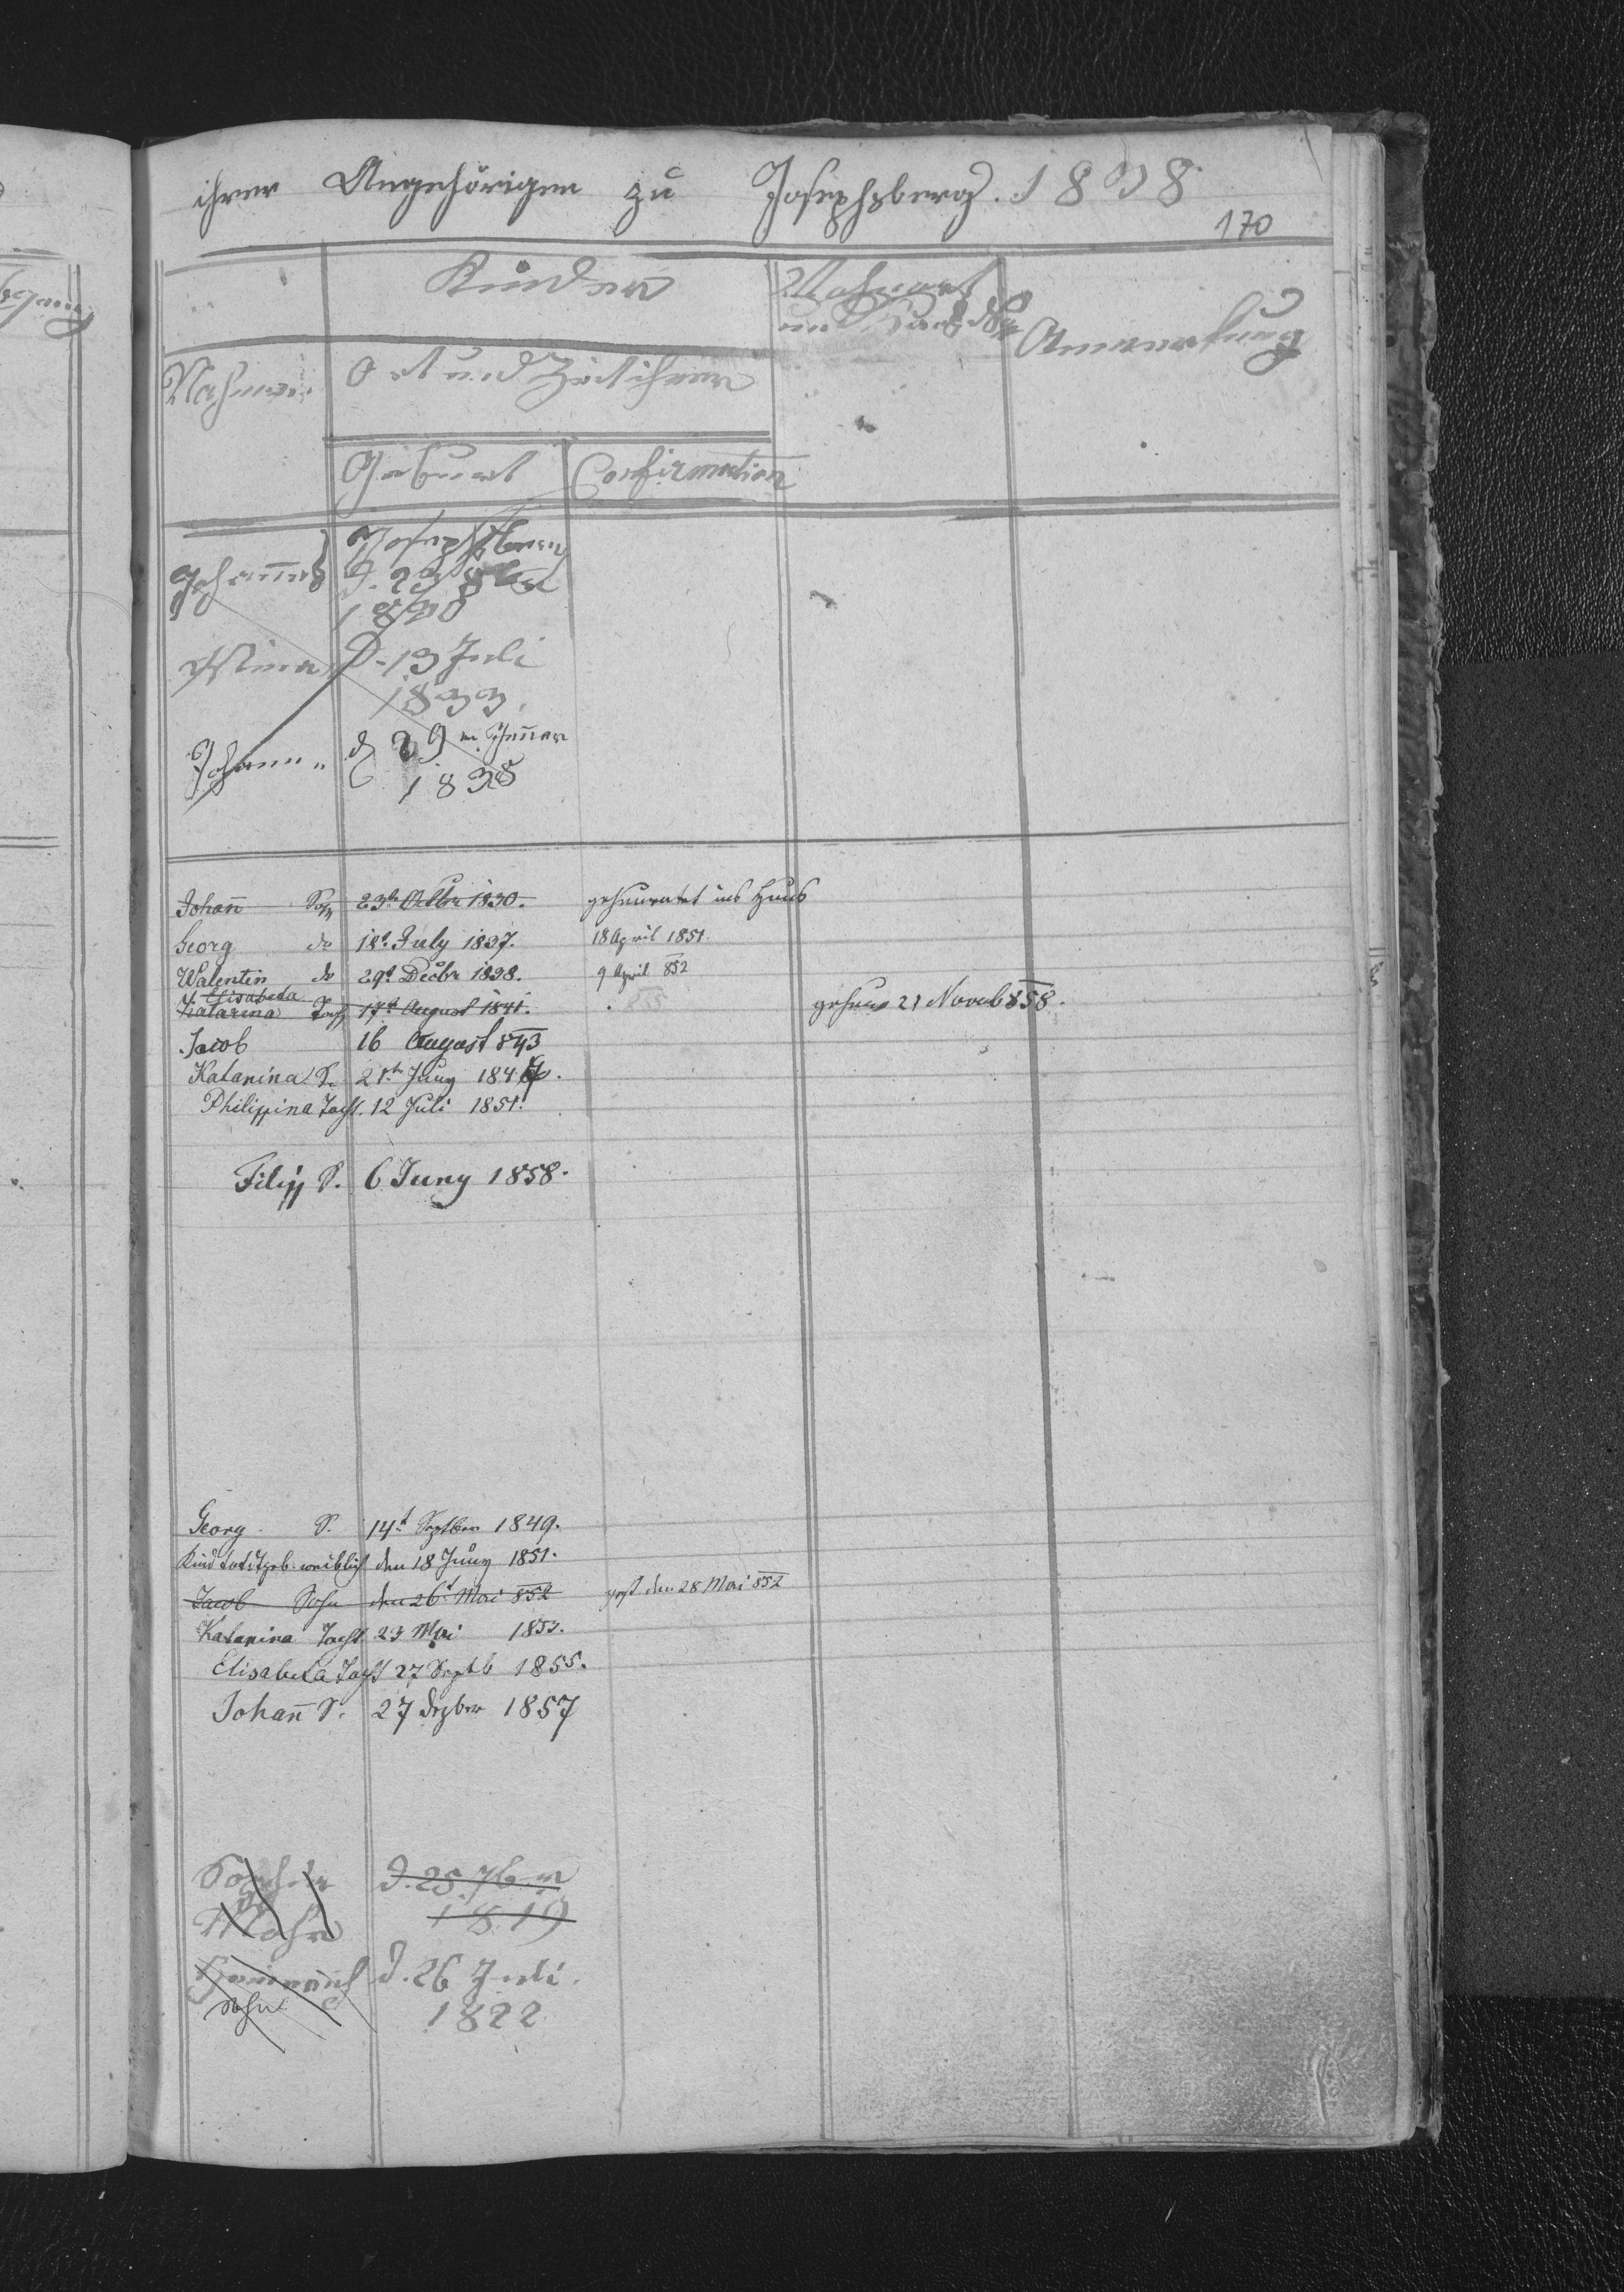 ihrer Angehörigen zu Josephsberg. 1838
170
Kinder
Wohnort
und Haus No
Anmerkung
Nahmen
Ort und Zeit ihrer
Geburt Confirmation
Josephsberg
Johannes d. 23 8ber
1830
D. 13 Juli
1833.
Johann d 29ten Jenner
1838
Johann Sohn 23t Octbr 1830. geheuratet ins Haus
Georg do 18t July 1837. 18 April 1851.
Walentin do 29t Decbr 1838. 9 April 852
Elisabeda
Katarina Toch 17t August 1841. 855 geheur 21 Novemb 858.
Jacob 16 August 843
Katarina T. 21th Juny 1847.
Philippina Tocht. 12 Juli 1851.
Filipp S. 6 Juny 1858.
Georg S. 14t Septber 1849.
Kind todt geb. weiblich den 18 Juny 1851.
Jacob Sohn den 26t Mai 852 gest den 28 Mai 852
Katarina Tocht 23 Mai 1853.
Elisabeta Tocht 27 Septb 1855.
Johann S. 27 Dezber 1857
Sophia d. 25. 7ber
1819
Heinrich d. 26 Juli.
Sohn 1822